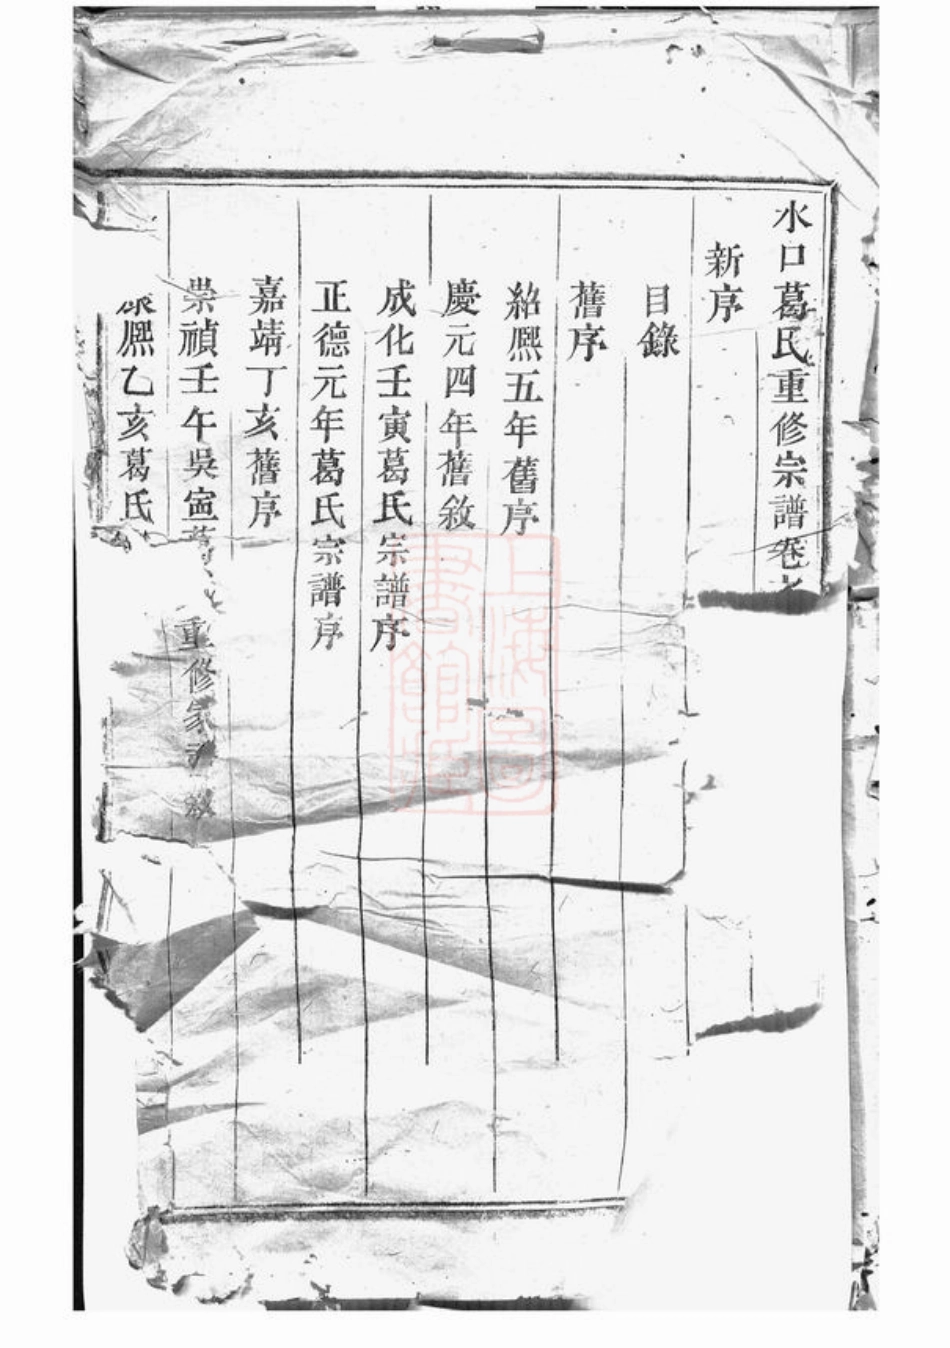 水口葛氏重修宗譜卷之
新序
目錄
舊序
紹熈五年舊序
慶元四年舊敘
成化壬寅葛氏宗譜序
正德元年葛氏宗譜序
嘉靖丁亥舊序
崇禎壬午吳寍葛 重修家
康熈乙亥葛氏
上海圖書館藏